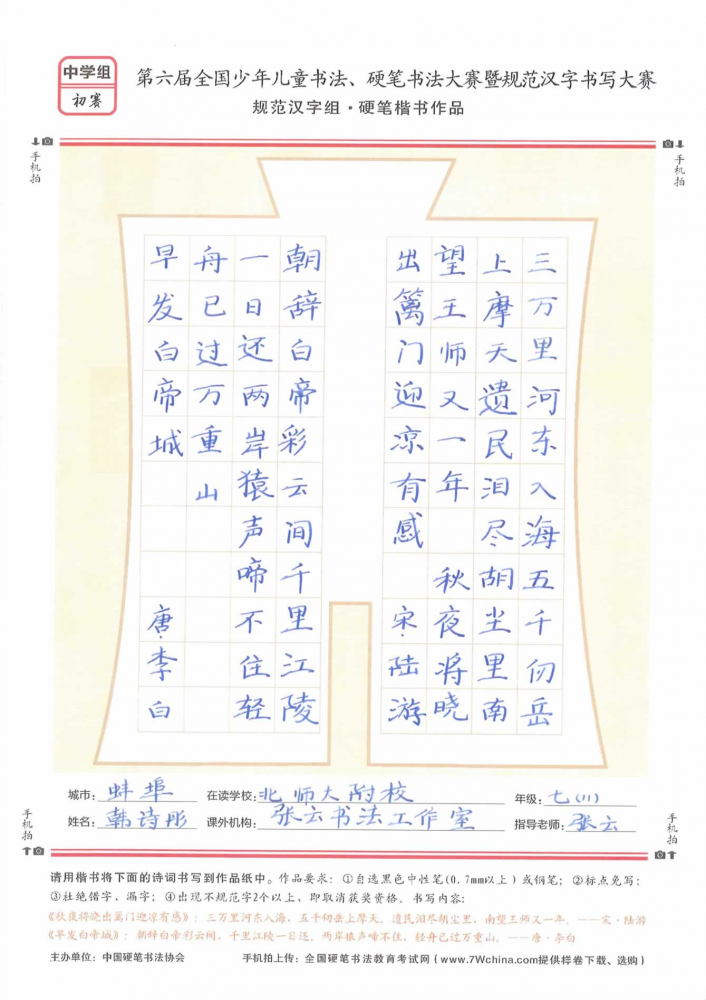 中学组
初赛
第六届全国少年儿童书法、硬笔书法大赛暨规范汉字书写大赛
规范汉字组·硬笔楷书作品
手机拍
手机拍
三万里河东入海五千仞岳
上摩天遗民泪尽胡尘里南
望王师又一年 秋夜将晓
出篱门迎凉有感 宋·陆游
朝辞白帝彩云间千里江陵
一日还两岸猿声啼不住轻
舟已过万重山
早发白帝城 唐·李白
城市：蚌埠 在读学校：北师大附校 年级：七(11)
姓名：韩诗彤 课外机构：张云书法工作室 指导老师：张云
手机拍
手机拍
请用楷书将下面的诗词书写到作品纸中。作品要求：①自选黑色中性笔(0.7mm以上)或钢笔；②标点免写；
③杜绝错字、漏字；④出现不规范字2个以上，即取消获奖资格。书写内容：
《秋夜将晓出篱门迎凉有感》：三万里河东入海，五千仞岳上摩天。遗民泪尽胡尘里，南望王师又一年。——宋·陆游
《早发白帝城》：朝辞白帝彩云间，千里江陵一日还。两岸猿声啼不住，轻舟已过万重山。——唐·李白
主办单位：中国硬笔书法协会 手机拍上传：全国硬笔书法教育考试网（www.7Wchina.com提供样卷下载、选购）